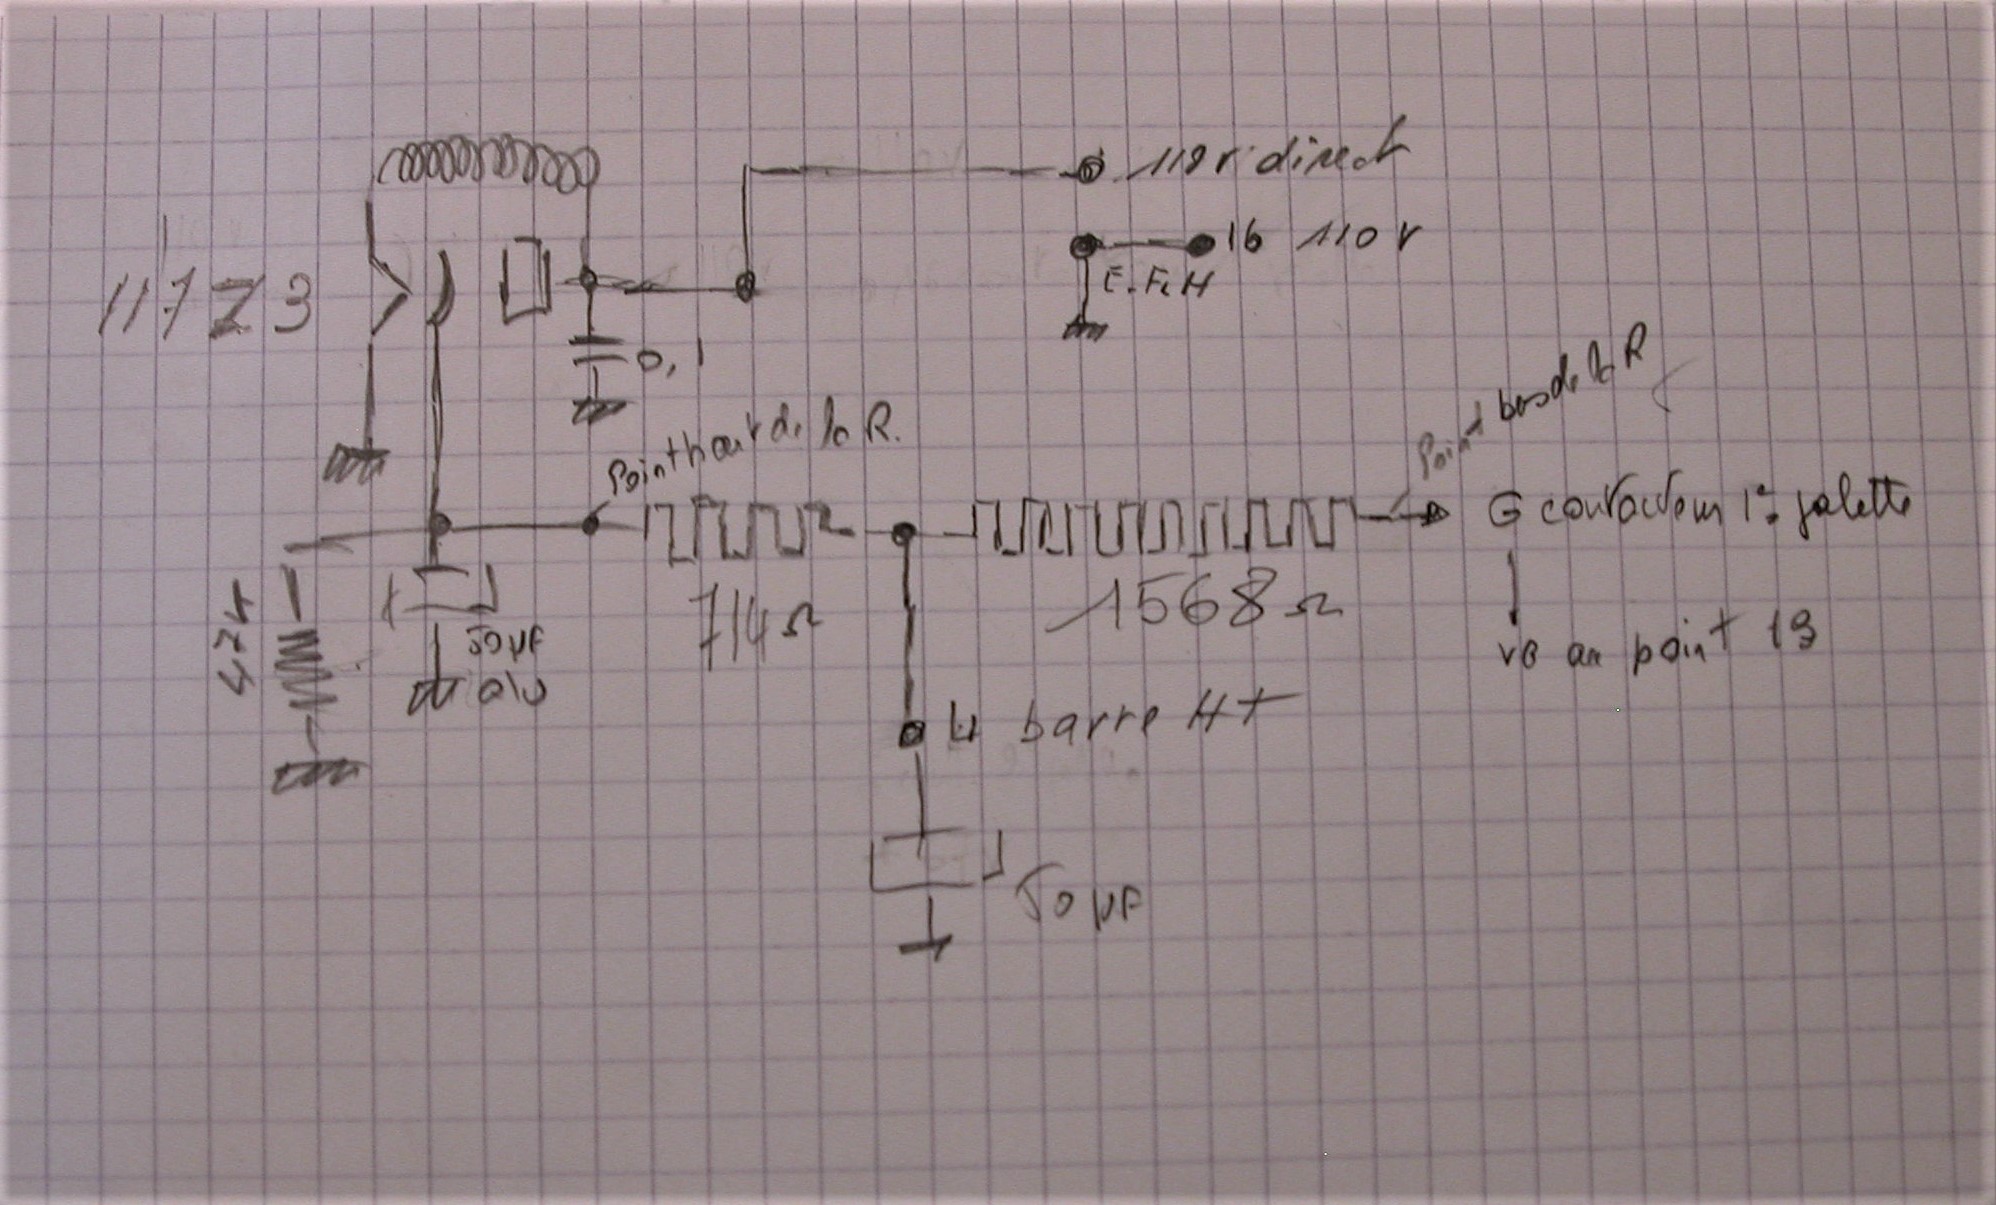 110 v direct
16 110 V
E.F.H
117Z3
0,1
Point haut de la R.
Point bas de la R
G contacteur 1° galette
va au point 13
47k
50 µF
alu
714 Ω
1568 Ω
barre HT
50 µF